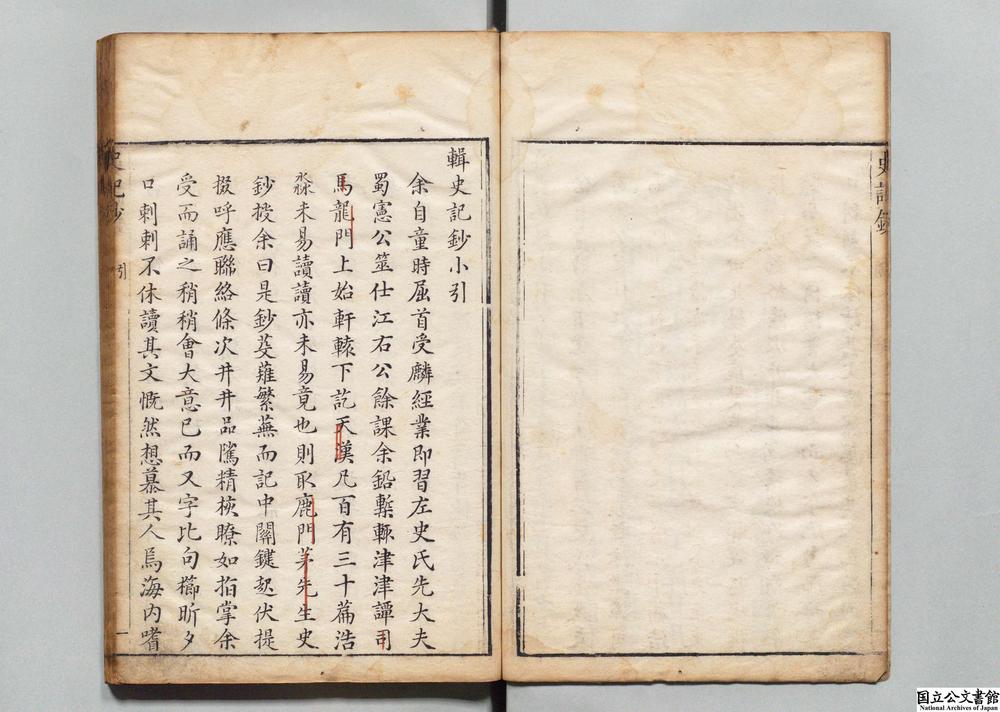 史記鈔
輯史記鈔小引
余自童時屈首受麟經業即習左史氏先大夫
蜀憲公筮仕江右公餘課余鉛槧輒津津譚司
馬龍門上始軒轅下訖天漢凡百有三十篇浩
淼未易讀讀亦未易竟也則取鹿門茅先生史
鈔授余曰是鈔芟薙繁蕪而記中關鍵起伏提
掇呼應聯絡條次井井品隲精核瞭如指掌余
受而誦之稍稍會大意已而又字比句櫛昕夕
口剌剌不休讀其文慨然想慕其人焉海內嗜
史記鈔
引
一
国立公文書館
National Archives of Japan